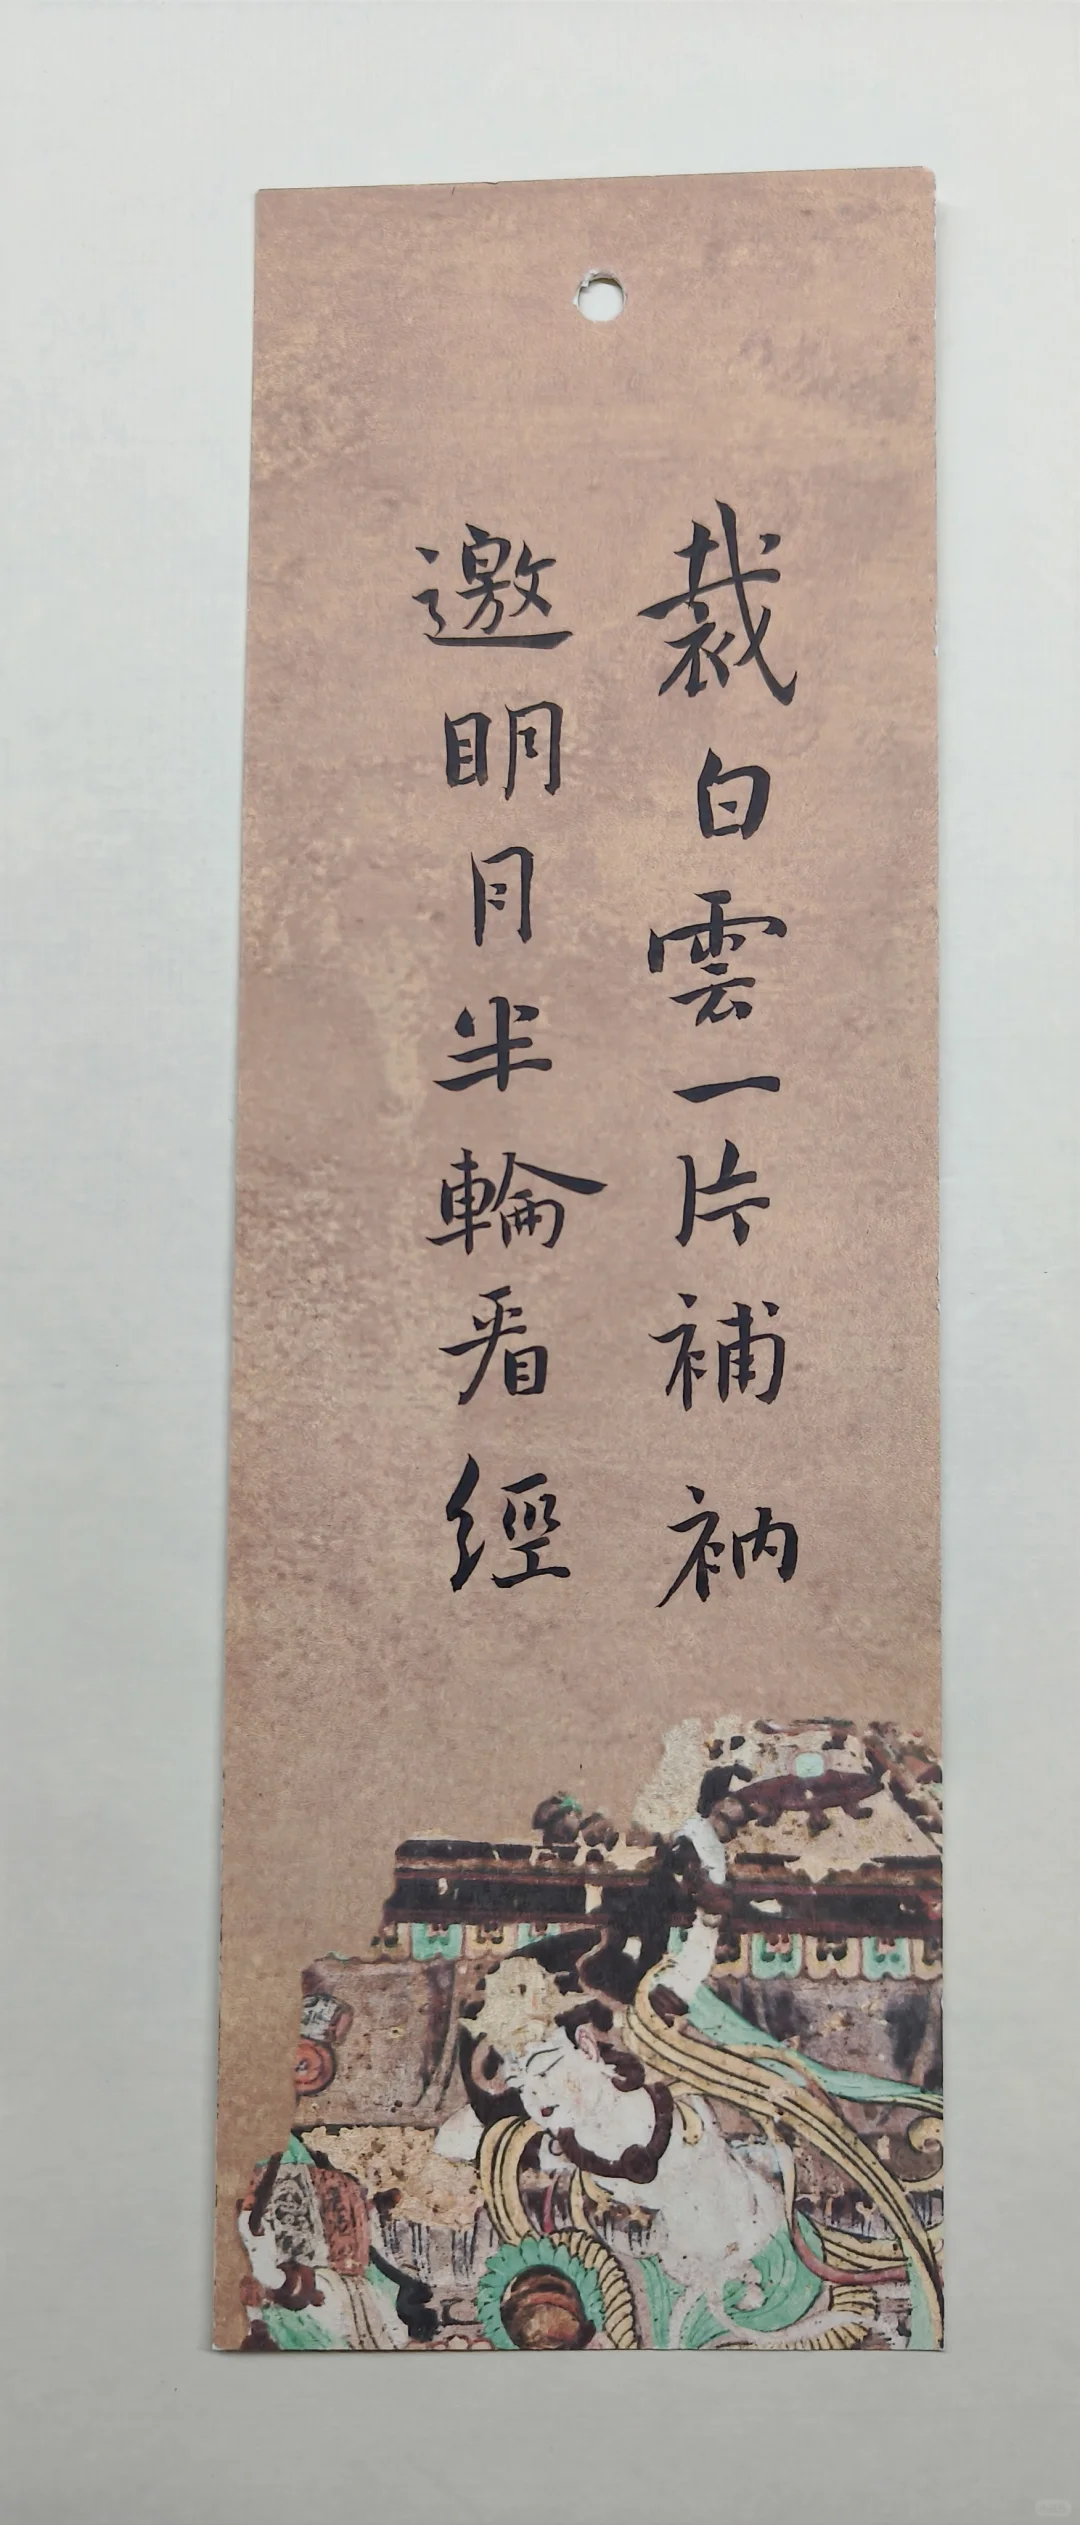 裁白雲一片補衲
邀明月半輪看經